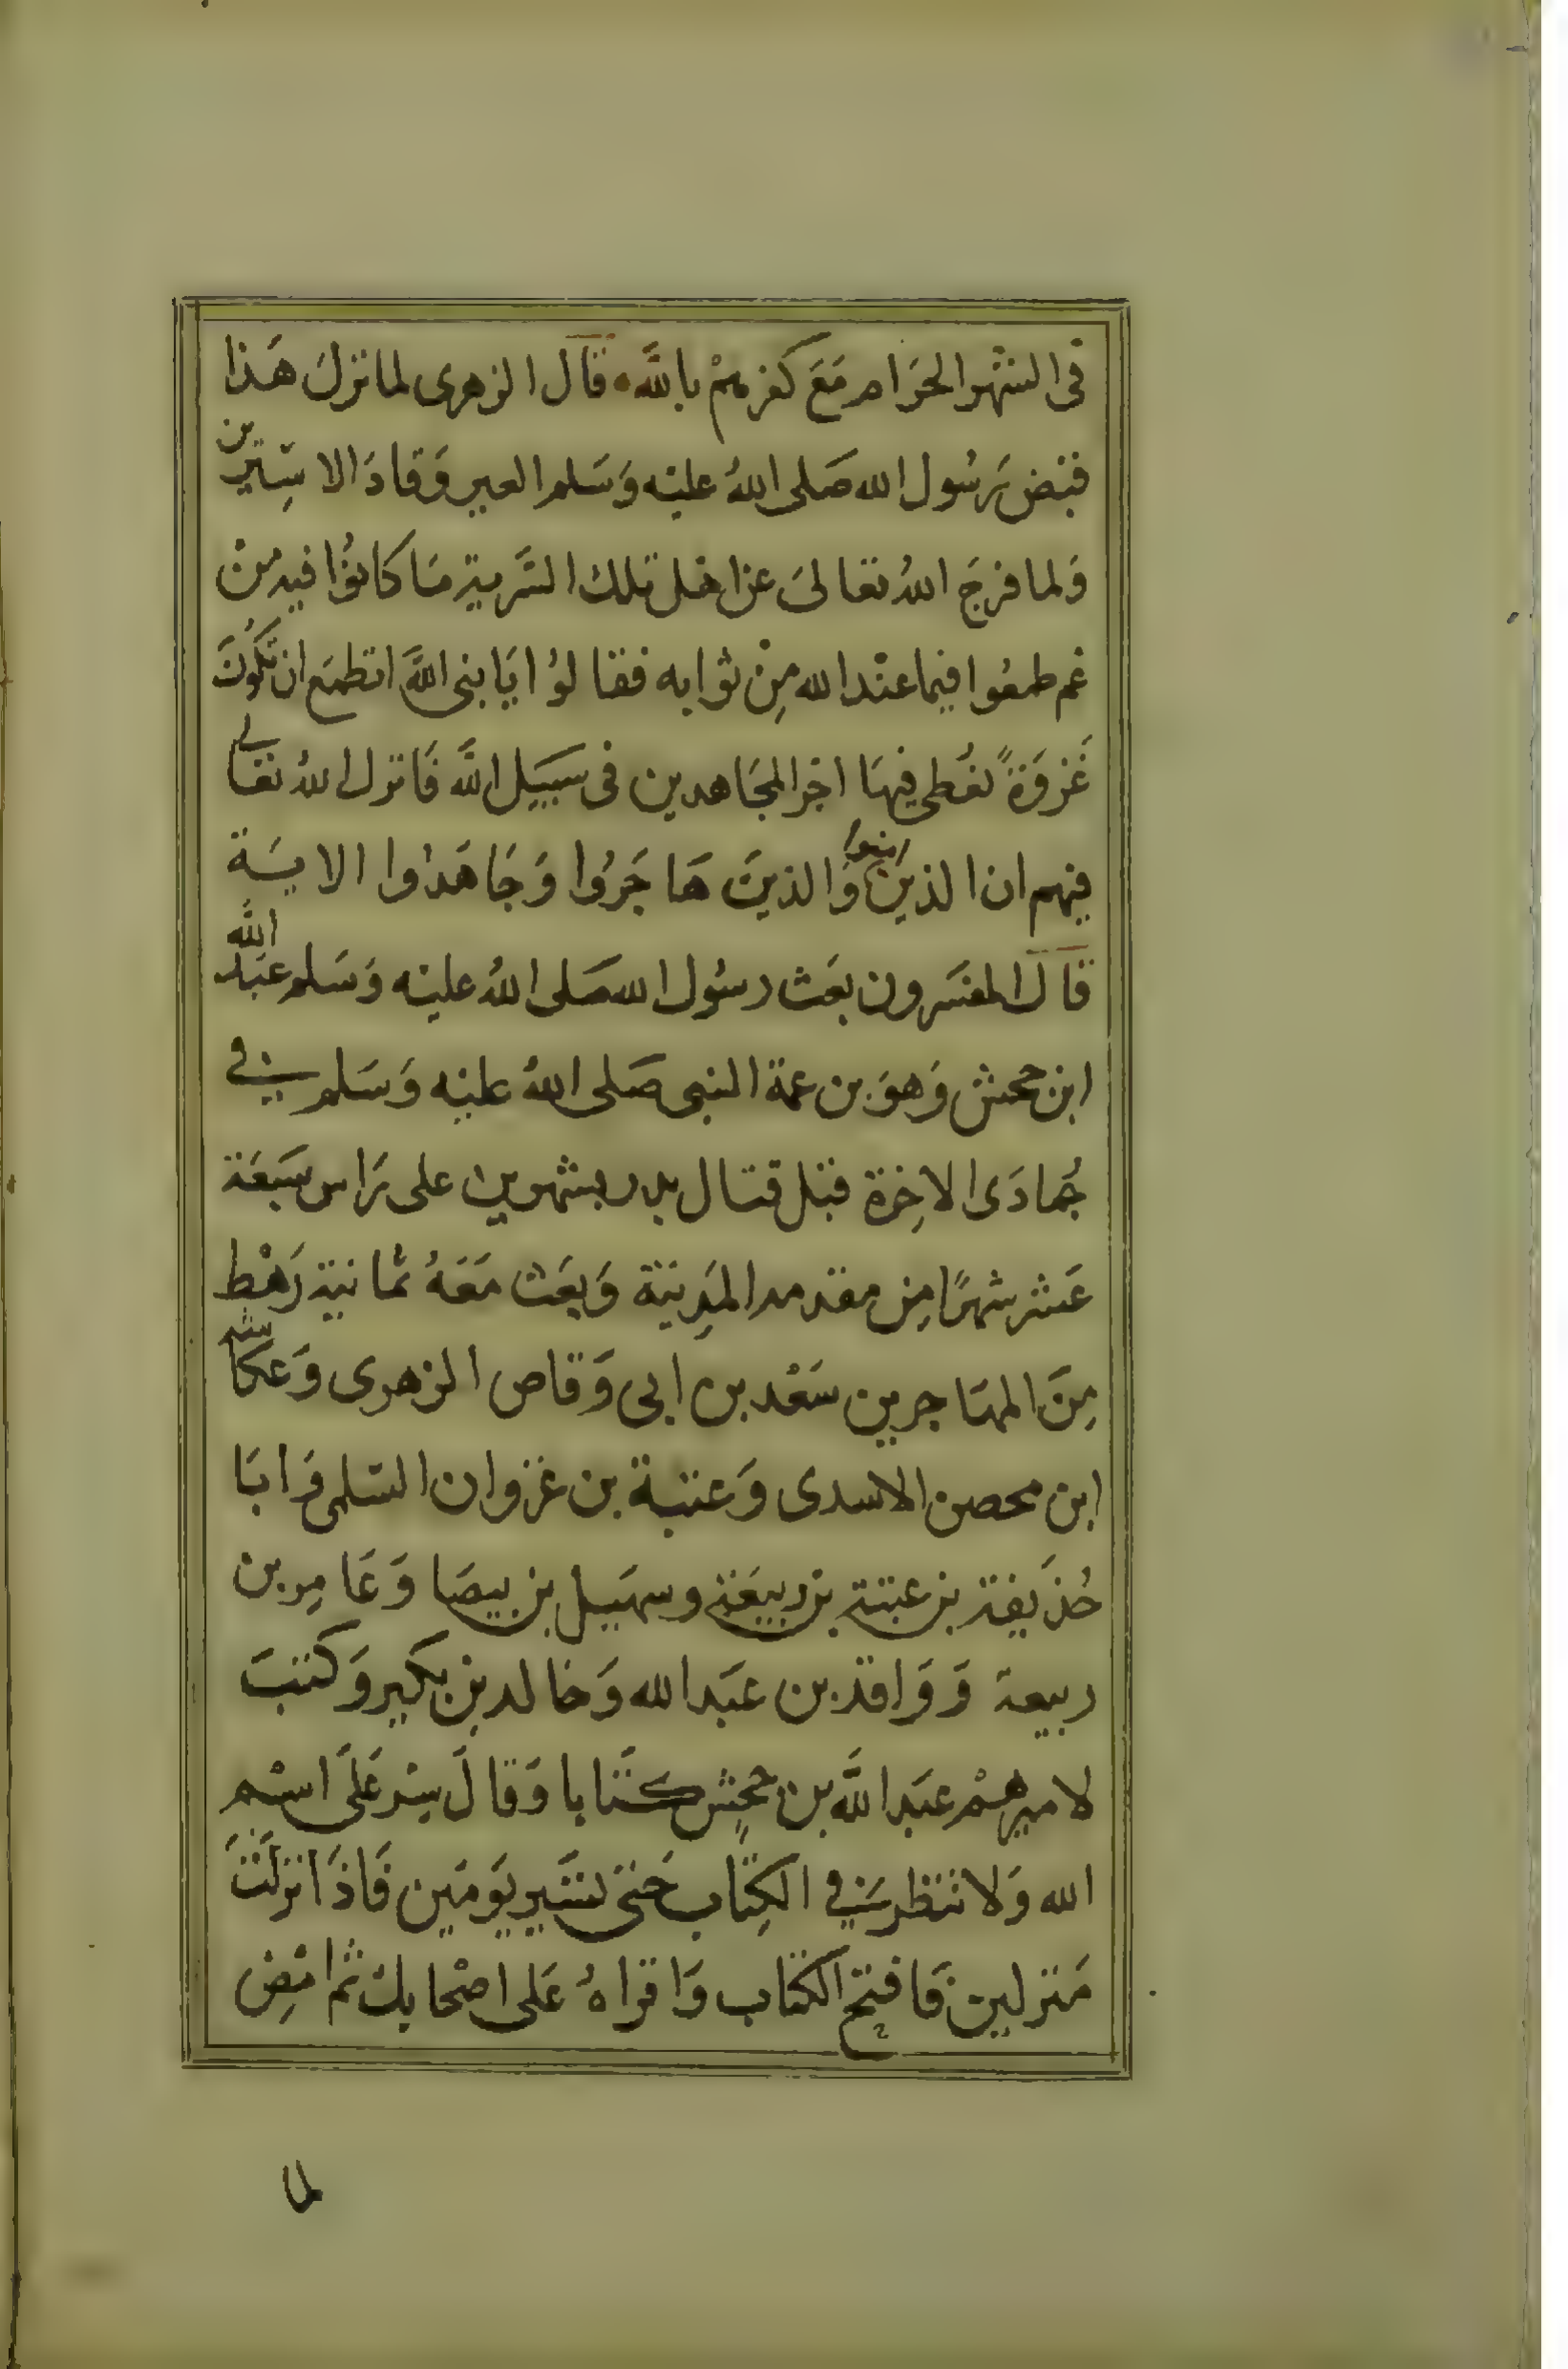 في الشهر الحَرَام مَعَ كفرهمْ بِاللَّه قَالَ الزهرى لما نزلَ هَذا
فقبض رَسُول الله صَلى اللهُ عليْه وَسَلم العير وَفادَا الاسِيَرين
وَلما فرجَ اللهُ تعَالىَ عن اهْل تلك السَّرية مَا كانوُا فيه منْ
غم طمعُوا فيما عنْد الله مِنْ ثوَابه فقالوُا يَا نبى اللَّه انطمَع ان تكُونَ
غَزوَةً نعُطى فيهَا اجْر المجَاهدين فى سَبيَل اللَّه فَانزل اللهُ تعَالى
فيهم ان الذين امنوا وَالذينَ هَاجَرُوا وَجَاهَدُوا الايَة
قَالَ المفسَرون بعَث رسُول الله صَلى اللهُ عليْه وَسَلم عبَد الله
ابن جحش وَهوَ بن عمة النبى صَلى اللهُ عليْه وَسَلم في
جُمادَى الاخِرة قبْل قتال بدر بشهرين على رَاس سَبعَة
عَشر شهرًا مِن مقدمه المَدِينَة وَبعَث مَعَهُ ثمانية رَهْط
مِنَ المهَاجرين سَعْد بن ابى وَقاص الزهرى وَعكاشه
ابن محصن الاسدى وَعتبَة بن غزوان السّلمى وَابَا
حُذَيفة بن عتبة بن ربيعَة وسهَيل بن بيضَا وَعَامِر بن
ربيعة وَوَاقد بن عبَد الله وَخالد بن بكير وَكتبَ
لاميرهمْ عبَد اللَّه بن جحش كتَابا وَقالَ سِرْ عَلَى اسْم
الله وَلا تنظر في الكِتاب حَتى تسَير يَومَين فَاذَا نزلتَ
مَنزلين فَافتح الكتاب وَاقراهُ عَلى اصْحابك ثم امْضِ
لما